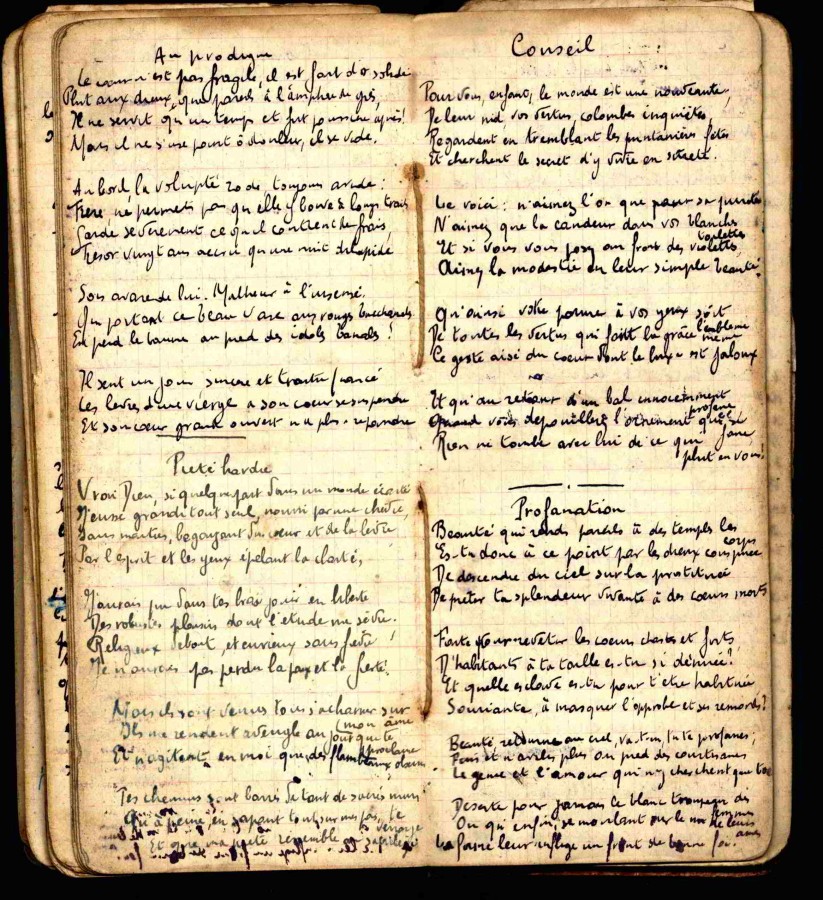 Au prodigue
Le coeur n'est pas fragile, il est fait d'or solide
Plut aux dieux, que pareil à l'amphore de grès,
Il ne servit qu'un temps et fut poussière après!
Mais il ne s'use point ô douleur, il se vide.
Au bord, la volupté rode, toujours avide:
Frere, ne permets pas qu'elle y boive à longs traits
Garde sévèrement ce qu'il contient de frais,
Tresor vingt ans accru qu'une nuit dilapide
Sois avare de lui. Malheur à l'insensé,
Qui portant ce beau vase aux rouges bacchanals
En perd le baume au pied des idols banals!
Il sent un jour sincère et traitre fiancé
Les levres d'une vierge a son coeur se suspendre
Et son coeur grand ouvert n'a plus à repandre
Piété hardie
Vrai Dieu, si quelque part dans un monde écarté
J'eusse grandi tout seul, nourri par une chèvre,
Sans maitres, begayant du coeur et de la levre
Par l'esprit et les yeux épelant la clarté,
J'aurais pu dans tes bras jouir en liberté
Des robustes plaisirs dont l'étude me sèvre.
Religieux debout, et curieux sans fièvre,
Je n'aurais pas perdu la paix et la fierté.
Mais ils sont venus tous s'acharner sur
mon âme
Ils me rendent aveugle au jour que te
proclame
Et n'agitent en moi que des flambeaux obscurs
Tes chemins sont barrés de tant de sacrés murs
Qu'à peine, en sapant tout sur mes pas, te
Et que ma piété ressemble au
Conseil
Pour vous, enfant, le monde est une nouveauté,
De leur nid vos vertus, colombes inquiètes,
Regardent en tremblant les printanières fetes
Et cherchent le secret d'y vivre en sureté.
Le voici: n'aimez l'or que pour sa pureté
N'aimez que la candeur dans vos blanches
toilettes
Et si vous vous posez au front des violettes,
Aimez la modestie en leur simple beauté.
Qu'ainsi votre parure à vos yeux soit
l'emblème
De toutes les vertus qui font la grâce même
Ce geste aisé du coeur dont le luxe est jaloux
Et qu'au retour d'un bal innocemment
profane
Quand vous dépouillerez l'ornement qui se
fane
Rien ne tombe avec lui de ce qui
plut en vous!
Profanation
Beauté qui rends pareils à des temples les
corps
Es-tu donc à ce point par les dieux conspuée
De descendre du ciel sur la prostituée
De preter ta splendeur vivante à des coeurs morts
Faite pour revetir les coeurs chastes et forts,
D'habitants à ta taille es-tu si dénuée?
Et quelle esclave es-tu pour t'etre habituée
Souriante, à masquer l'opprobe et ses remords?
Beauté retourne au ciel, va-t-en, tu te profanes;
Fuis et n'avilis plus au pied des courtisanes
Le génie et l'amour qui n'y cherchent que toi
Deserte pour jamais le blanc troupeau des
femmes
Ou qu'enfin, se moulant sur le nu de leurs
âmes
La forme leur inflige un front de bonne foi.